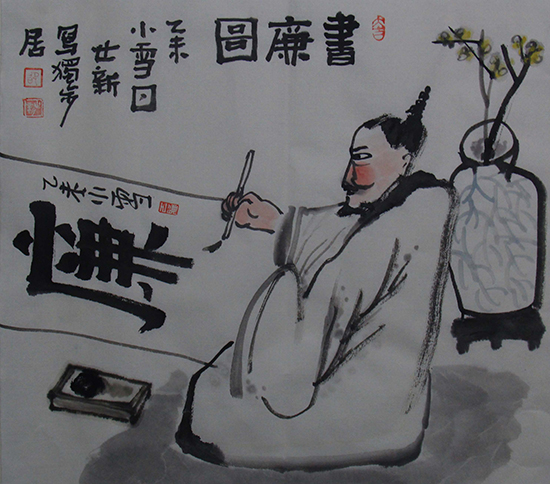 書廉圖
乙未
小雪日
廿新
寫獨步
居
乙未小雪
廉